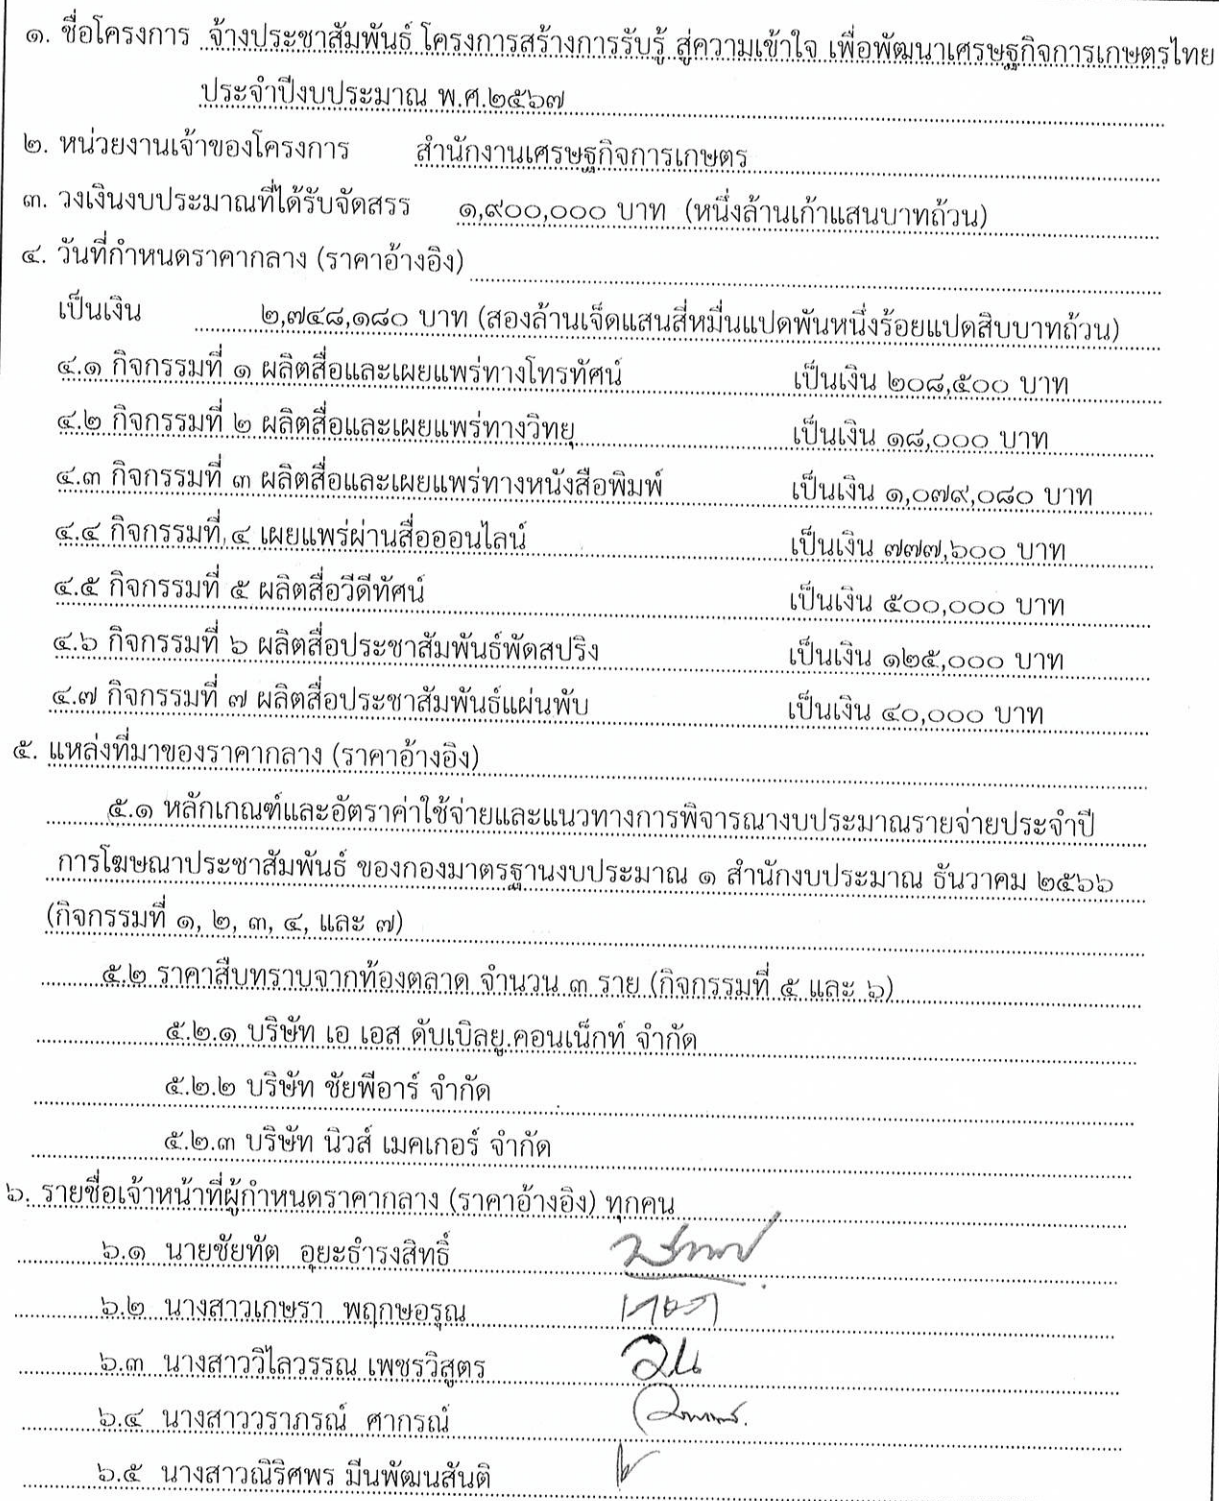 ๑. ชื่อโครงการ จ้างประชาสัมพันธ์ โครงการสร้างการรับรู้ สู่ความเข้าใจ เพื่อพัฒนาเศรษฐกิจการเกษตรไทย
ประจำปีงบประมาณ พ.ศ.๒๕๖๗
๒. หน่วยงานเจ้าของโครงการ สำนักงานเศรษฐกิจการเกษตร
๓. วงเงินงบประมาณที่ได้รับจัดสรร ๑,๙๐๐,๐๐๐ บาท (หนึ่งล้านเก้าแสนบาทถ้วน)
๔. วันที่กำหนดราคากลาง (ราคาอ้างอิง)
เป็นเงิน ๒,๗๔๘,๑๘๐ บาท (สองล้านเจ็ดแสนสี่หมื่นแปดพันหนึ่งร้อยแปดสิบบาทถ้วน)
๔.๑ กิจกรรมที่ ๑ ผลิตสื่อและเผยแพร่ทางโทรทัศน์ เป็นเงิน ๒๐๘,๕๐๐ บาท
๔.๒ กิจกรรมที่ ๒ ผลิตสื่อและเผยแพร่ทางวิทยุ เป็นเงิน ๑๘,๐๐๐ บาท
๔.๓ กิจกรรมที่ ๓ ผลิตสื่อและเผยแพร่ทางหนังสือพิมพ์ เป็นเงิน ๑,๐๗๙,๐๘๐ บาท
๔.๔ กิจกรรมที่ ๔ เผยแพร่ผ่านสื่อออนไลน์ เป็นเงิน ๗๗๗,๖๐๐ บาท
๔.๕ กิจกรรมที่ ๕ ผลิตสื่อวีดีทัศน์ เป็นเงิน ๕๐๐,๐๐๐ บาท
๔.๖ กิจกรรมที่ ๖ ผลิตสื่อประชาสัมพันธ์พัดสปริง เป็นเงิน ๑๒๕,๐๐๐ บาท
๔.๗ กิจกรรมที่ ๗ ผลิตสื่อประชาสัมพันธ์แผ่นพับ เป็นเงิน ๔๐,๐๐๐ บาท
๕. แหล่งที่มาของราคากลาง (ราคาอ้างอิง)
๕.๑ หลักเกณฑ์และอัตราค่าใช้จ่ายและแนวทางการพิจารณางบประมาณรายจ่ายประจำปี
การโฆษณาประชาสัมพันธ์ ของกองมาตรฐานงบประมาณ ๑ สำนักงบประมาณ ธันวาคม ๒๕๖๖
(กิจกรรมที่ ๑, ๒, ๓, ๔, และ ๗)
๕.๒ ราคาสืบทราบจากท้องตลาด จำนวน ๓ ราย (กิจกรรมที่ ๕ และ ๖)
๕.๒.๑ บริษัท เอ เอส ดับเบิลยู.คอนเน็กท์ จำกัด
๕.๒.๒ บริษัท ชัยพีอาร์ จำกัด
๕.๒.๓ บริษัท นิวส์ เมคเกอร์ จำกัด
๖. รายชื่อเจ้าหน้าที่ผู้กำหนดราคากลาง (ราคาอ้างอิง) ทุกคน
๖.๑ นายชัยทัต อุยะธำรงสิทธิ์
๖.๒ นางสาวเกษรา พฤกษอรุณ
๖.๓ นางสาววิไลวรรณ เพชรวิสูตร
๖.๔ นางสาววราภรณ์ ศากรณ์
๖.๕ นางสาวณิริศพร มีนพัฒนสันติ